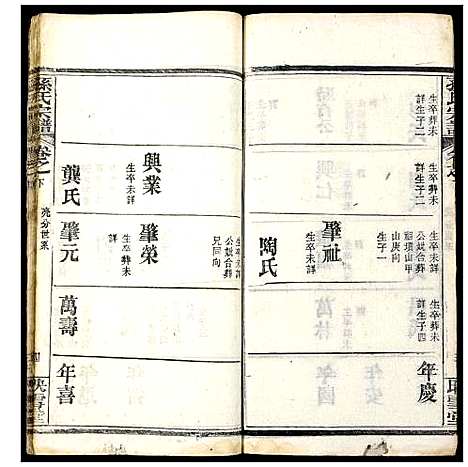 生卒葬未
詳生子二
生卒葬未
詳生子二
生卒葬未
詳
公妣合葬
山庚向
生子一
生卒葬未
詳生子四
年慶
肇祉
生卒葬未詳
陶氏
孫氏宗譜
卷之
下
亮分世系
興業
生卒未詳
龔氏
公妣合葬
兄同向
肇榮
生卒葬未
詳
肇元
萬壽
年喜
映雪堂